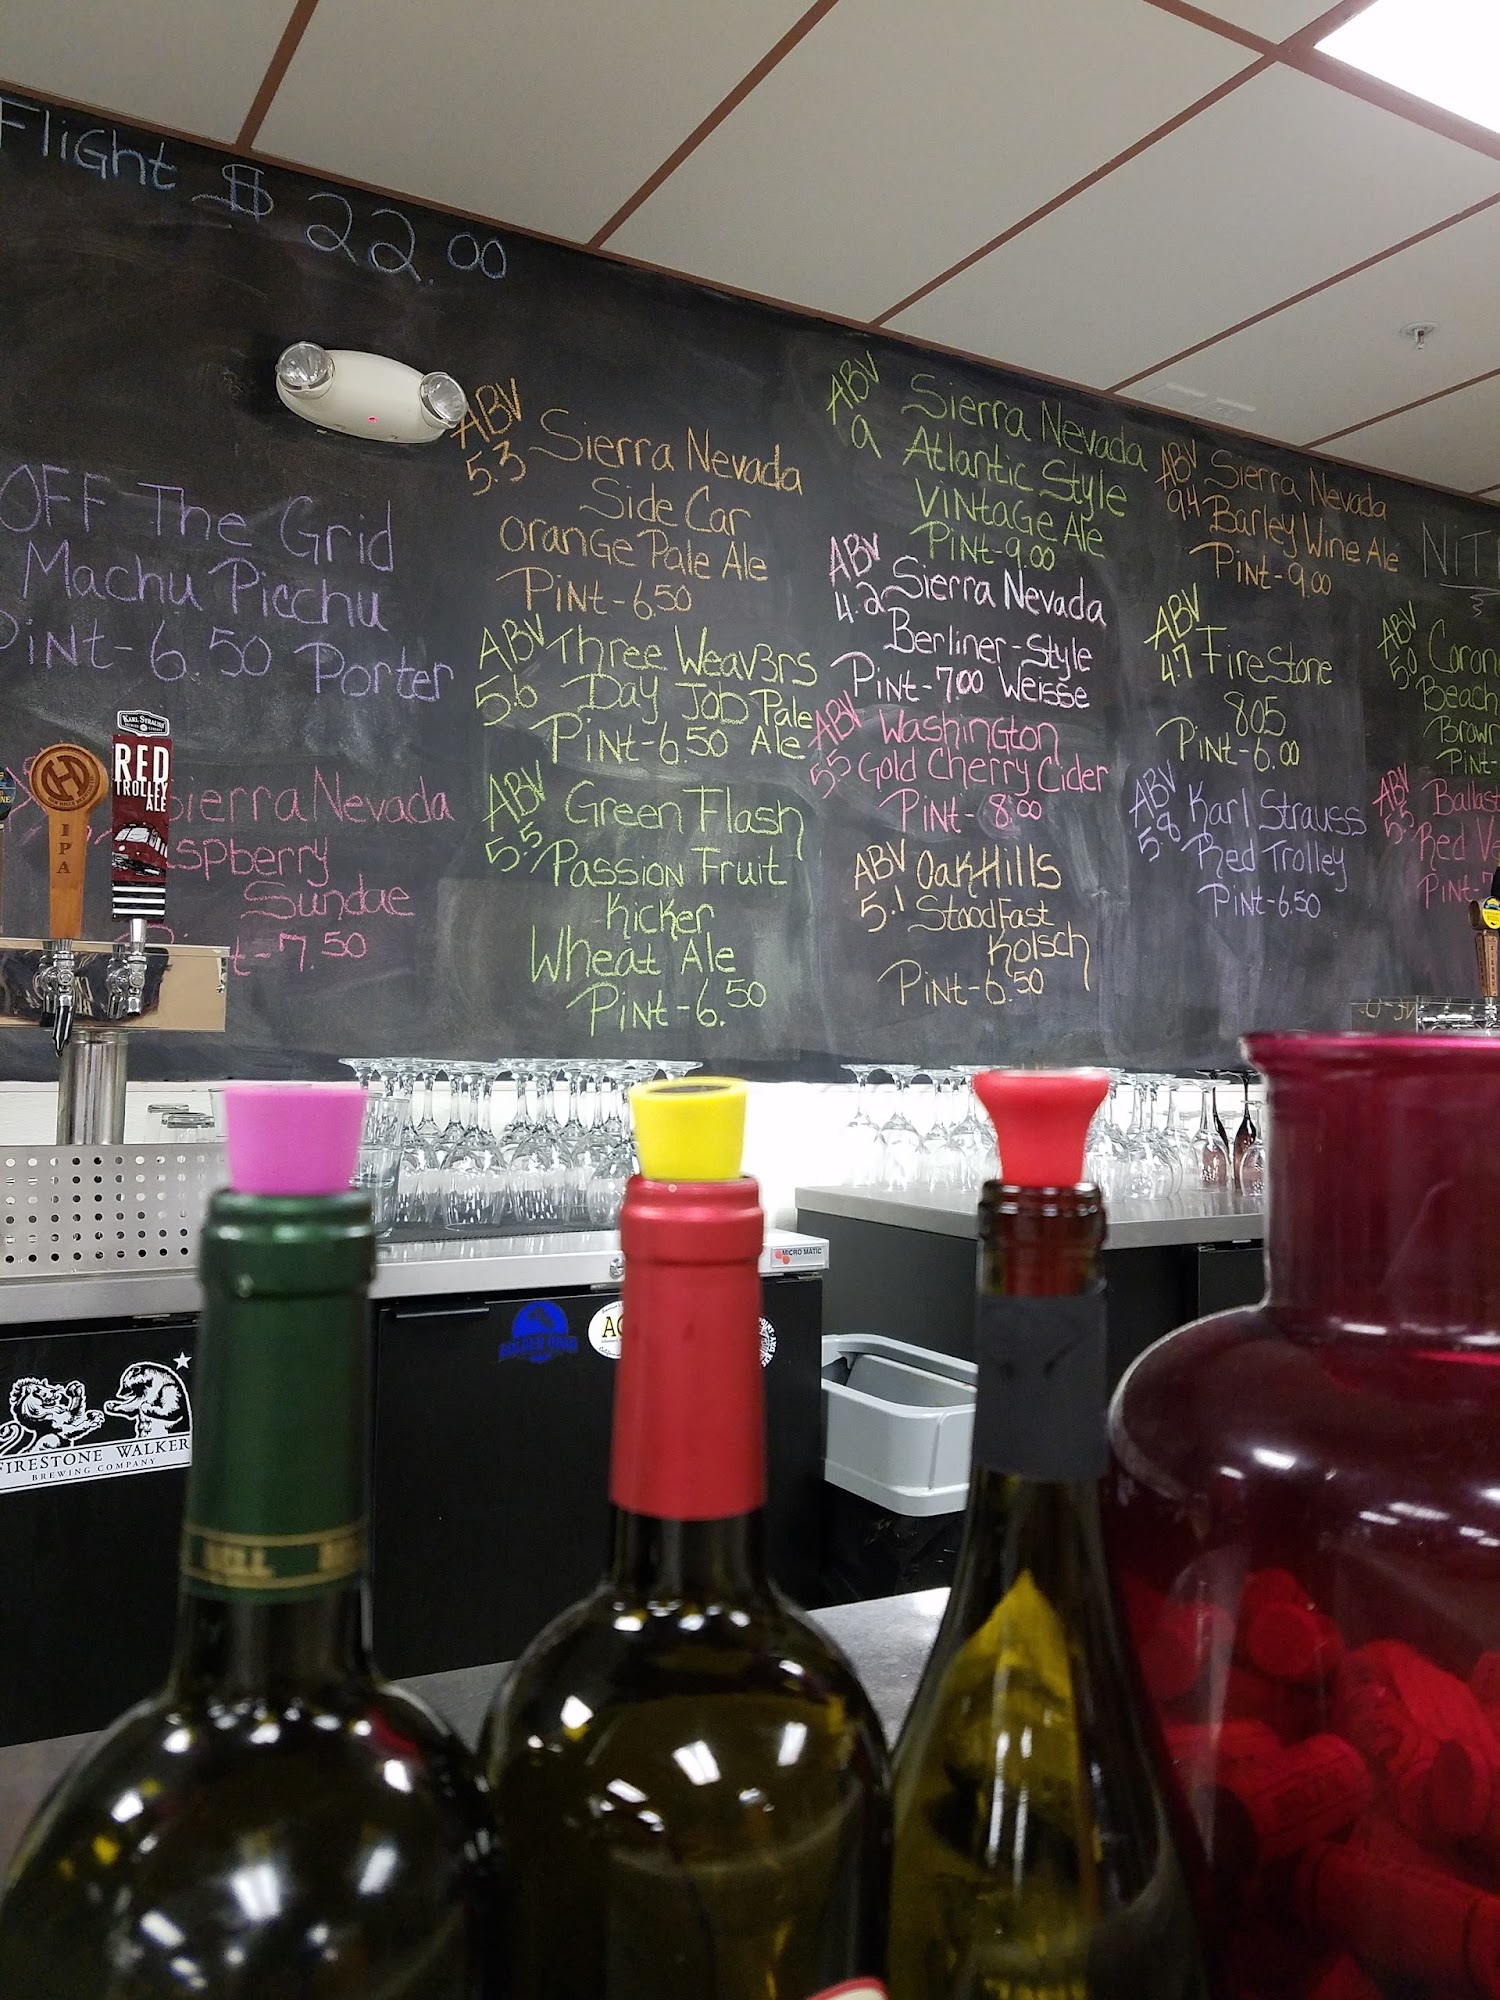 Flight $22.00
OFF The Grid
Machu Picchu
Pint-6.50 Porter
Sierra Nevada
Sundae
7.50
ABV
5.3
Sierra Nevada
Side Car
Orange Pale Ale
Pint-6.50
ABV
5.6
Three Weav3rs
Day Job Pale
Pint-6.50 Ale
ABV
5.5
Green Flash
Passion Fruit
Kicker
Wheat Ale
Pint-6.50
ABV
a
Sierra Nevada
Atlantic Style
Vintage Ale
Pint-9.00
ABV
4.2
Sierra Nevada
Berliner-Style
Pint-7.00 Weisse
ABV
5.5
Washington
Gold Cherry Cider
Pint-8.00
ABV
5.1
Oak Hills
StoodFast
Kolsch
Pint-6.50
ABV
9.4
Sierra Nevada
Barley Wine Ale
Pint-9.00
ABV
4.7
FireStone
805
Pint-6.00
ABV
5.8
Karl Strauss
Red Trolley
Pint-6.50
ABV
5.0
Beach
Pint-
ABV
5.5
Red
KARL STRAUSS
RED
TROLLEY
ALE
IPA
MICRO MATIC
FIRESTONE WALKER
BREWING COMPANY